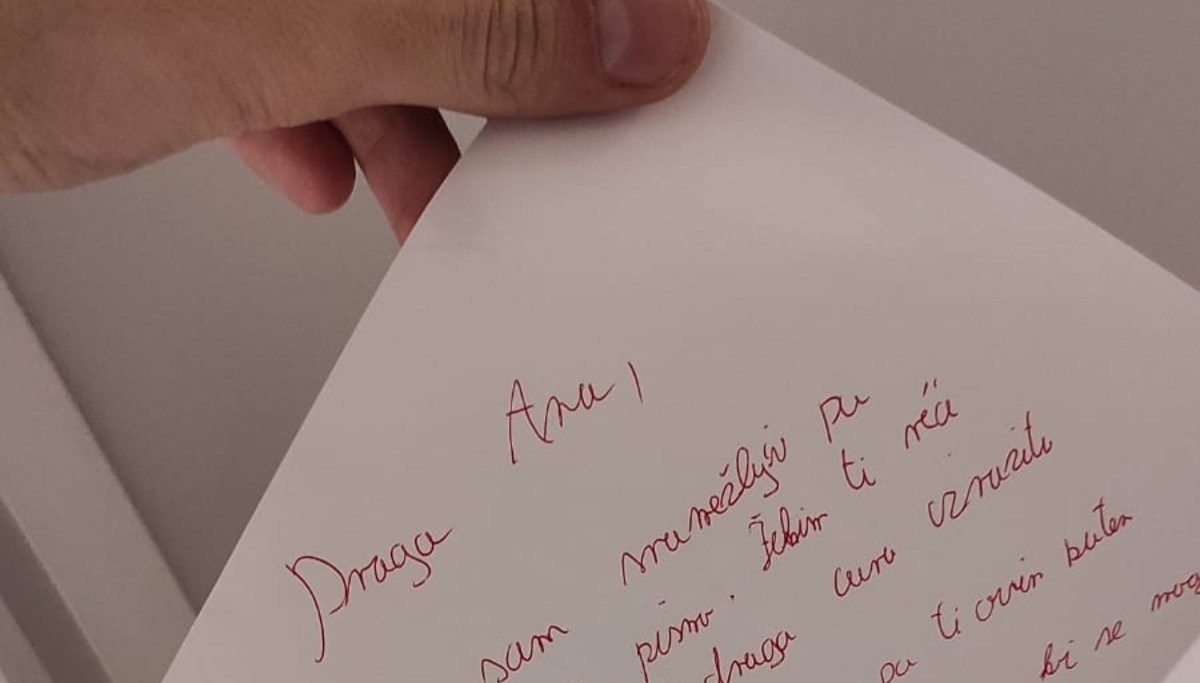 Draga Ana,
sam sramežljiv pa
pismo. Želim ti reći
draga cura izraziti
pa ti ovim putem
bi se mog